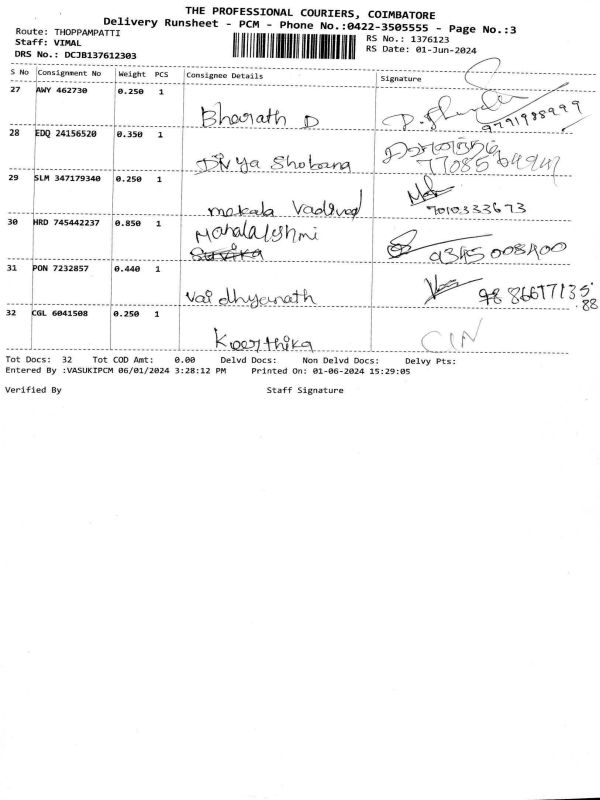 THE PROFESSIONAL COURIERS, COIMBATORE
Delivery Runsheet - PCM - Phone No.:0422-3505555 - Page No.:3
Route: THOPPAMPATTI
RS No.: 1376123
Staff: VIMAL
RS Date: 01-Jun-2024
DRS No.: DCJB137612303
S No Consignment No Weight PCS Consignee Details Signature
27 AWY 462730 0.250 1
Bharath D 9791988999
28 EDQ 24156520 0.350 1
Divya Shobana
29 SLM 347179340 0.250 1
mekala Vadivel 7010333673
30 HRD 745442237 0.850 1 Mahalalshmi
Suvika 9345008400
31 PON 7232857 0.440 1
Vaidhyanath
32 CGL 6041508 0.250 1
Keerthika
Tot Docs: 32 Tot COD Amt: 0.00 Delvd Docs: Non Delvd Docs: Delvy Pts:
Entered By :VASUKIPCM 06/01/2024 3:28:12 PM Printed On: 01-06-2024 15:29:05
Verified By Staff Signature